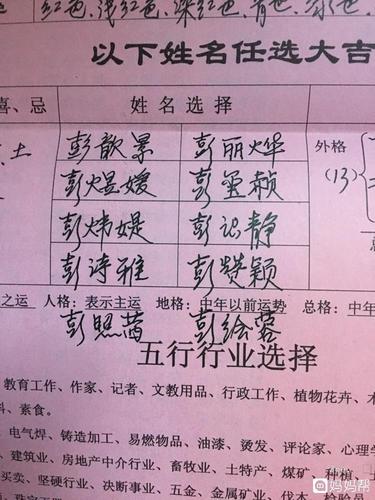 红色、浅红色、深红色、青色、绿色、
以下姓名任选大吉
喜、忌 姓名选择
土 彭歆景 彭丽烨 外格
彭煜媛 彭 赪 (13)
彭炜媞 彭识静
彭诗雅 彭赞颖
之运 人格：表示主运 地格：中年以前运势 总格：中年
彭照茜 彭绘蓉
五行行业选择
教育工作、作家、记者、文教用品、行政工作、植物花卉、木
料、素食。
电气焊、铸造加工、易燃物品、油漆、烫发、评论家、心理学
建筑业、房地产中介行业、畜牧业、土特产、煤矿、种植
买卖、坚硬行业、决断事业、五金、金属矿业、伐木、检验员
妈妈帮